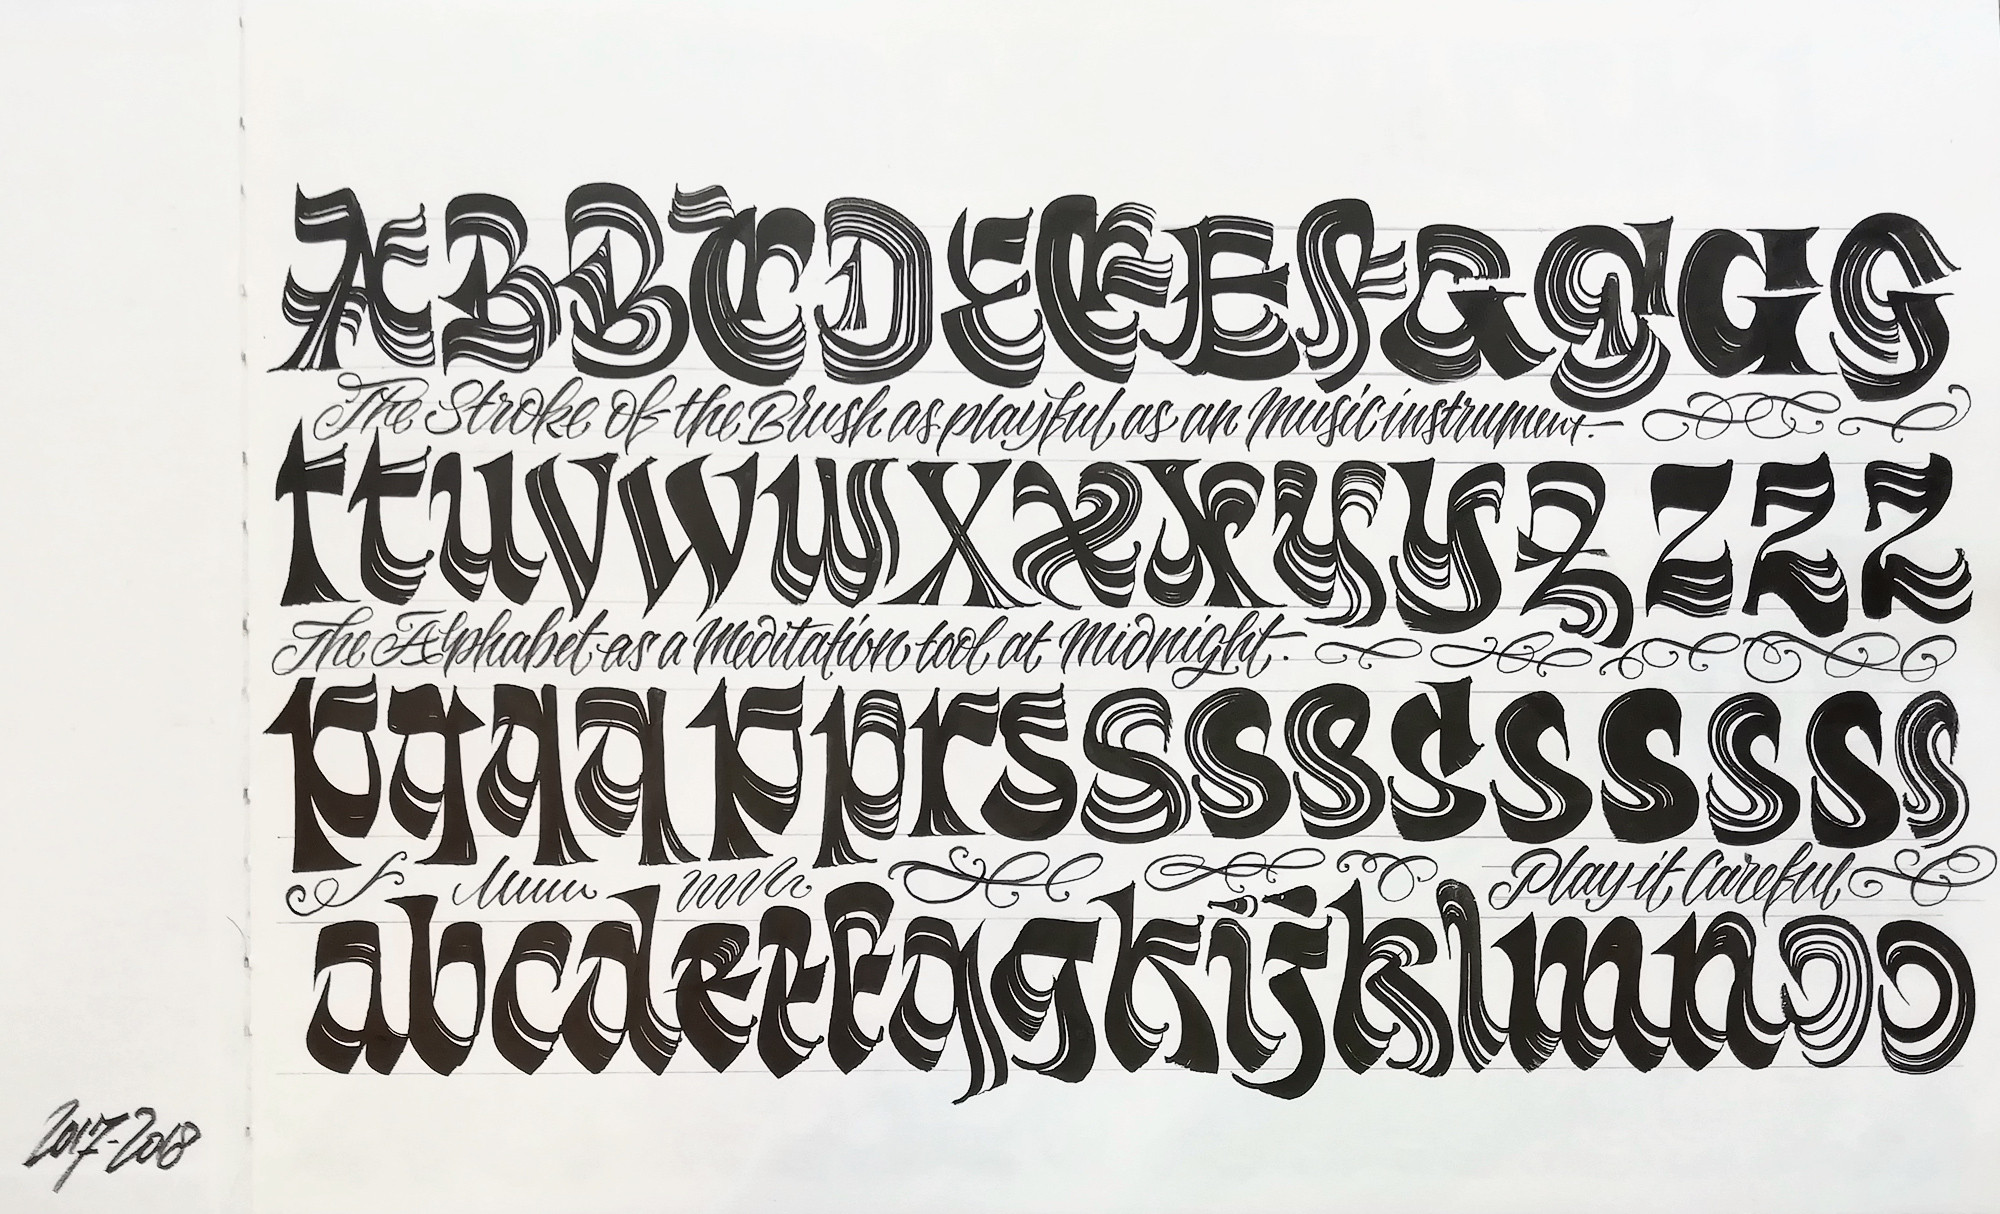 ABBCDEEEFGGGG
The Stroke of the Brush as playful as an Music instrument.-
ttuvwwxxxyyzzzz
The Alphabet as a Meditation tool at Midnight.-
pqqqpprssssssssss
Play it Careful
abcdeefggkijklmnoo
2017-2018